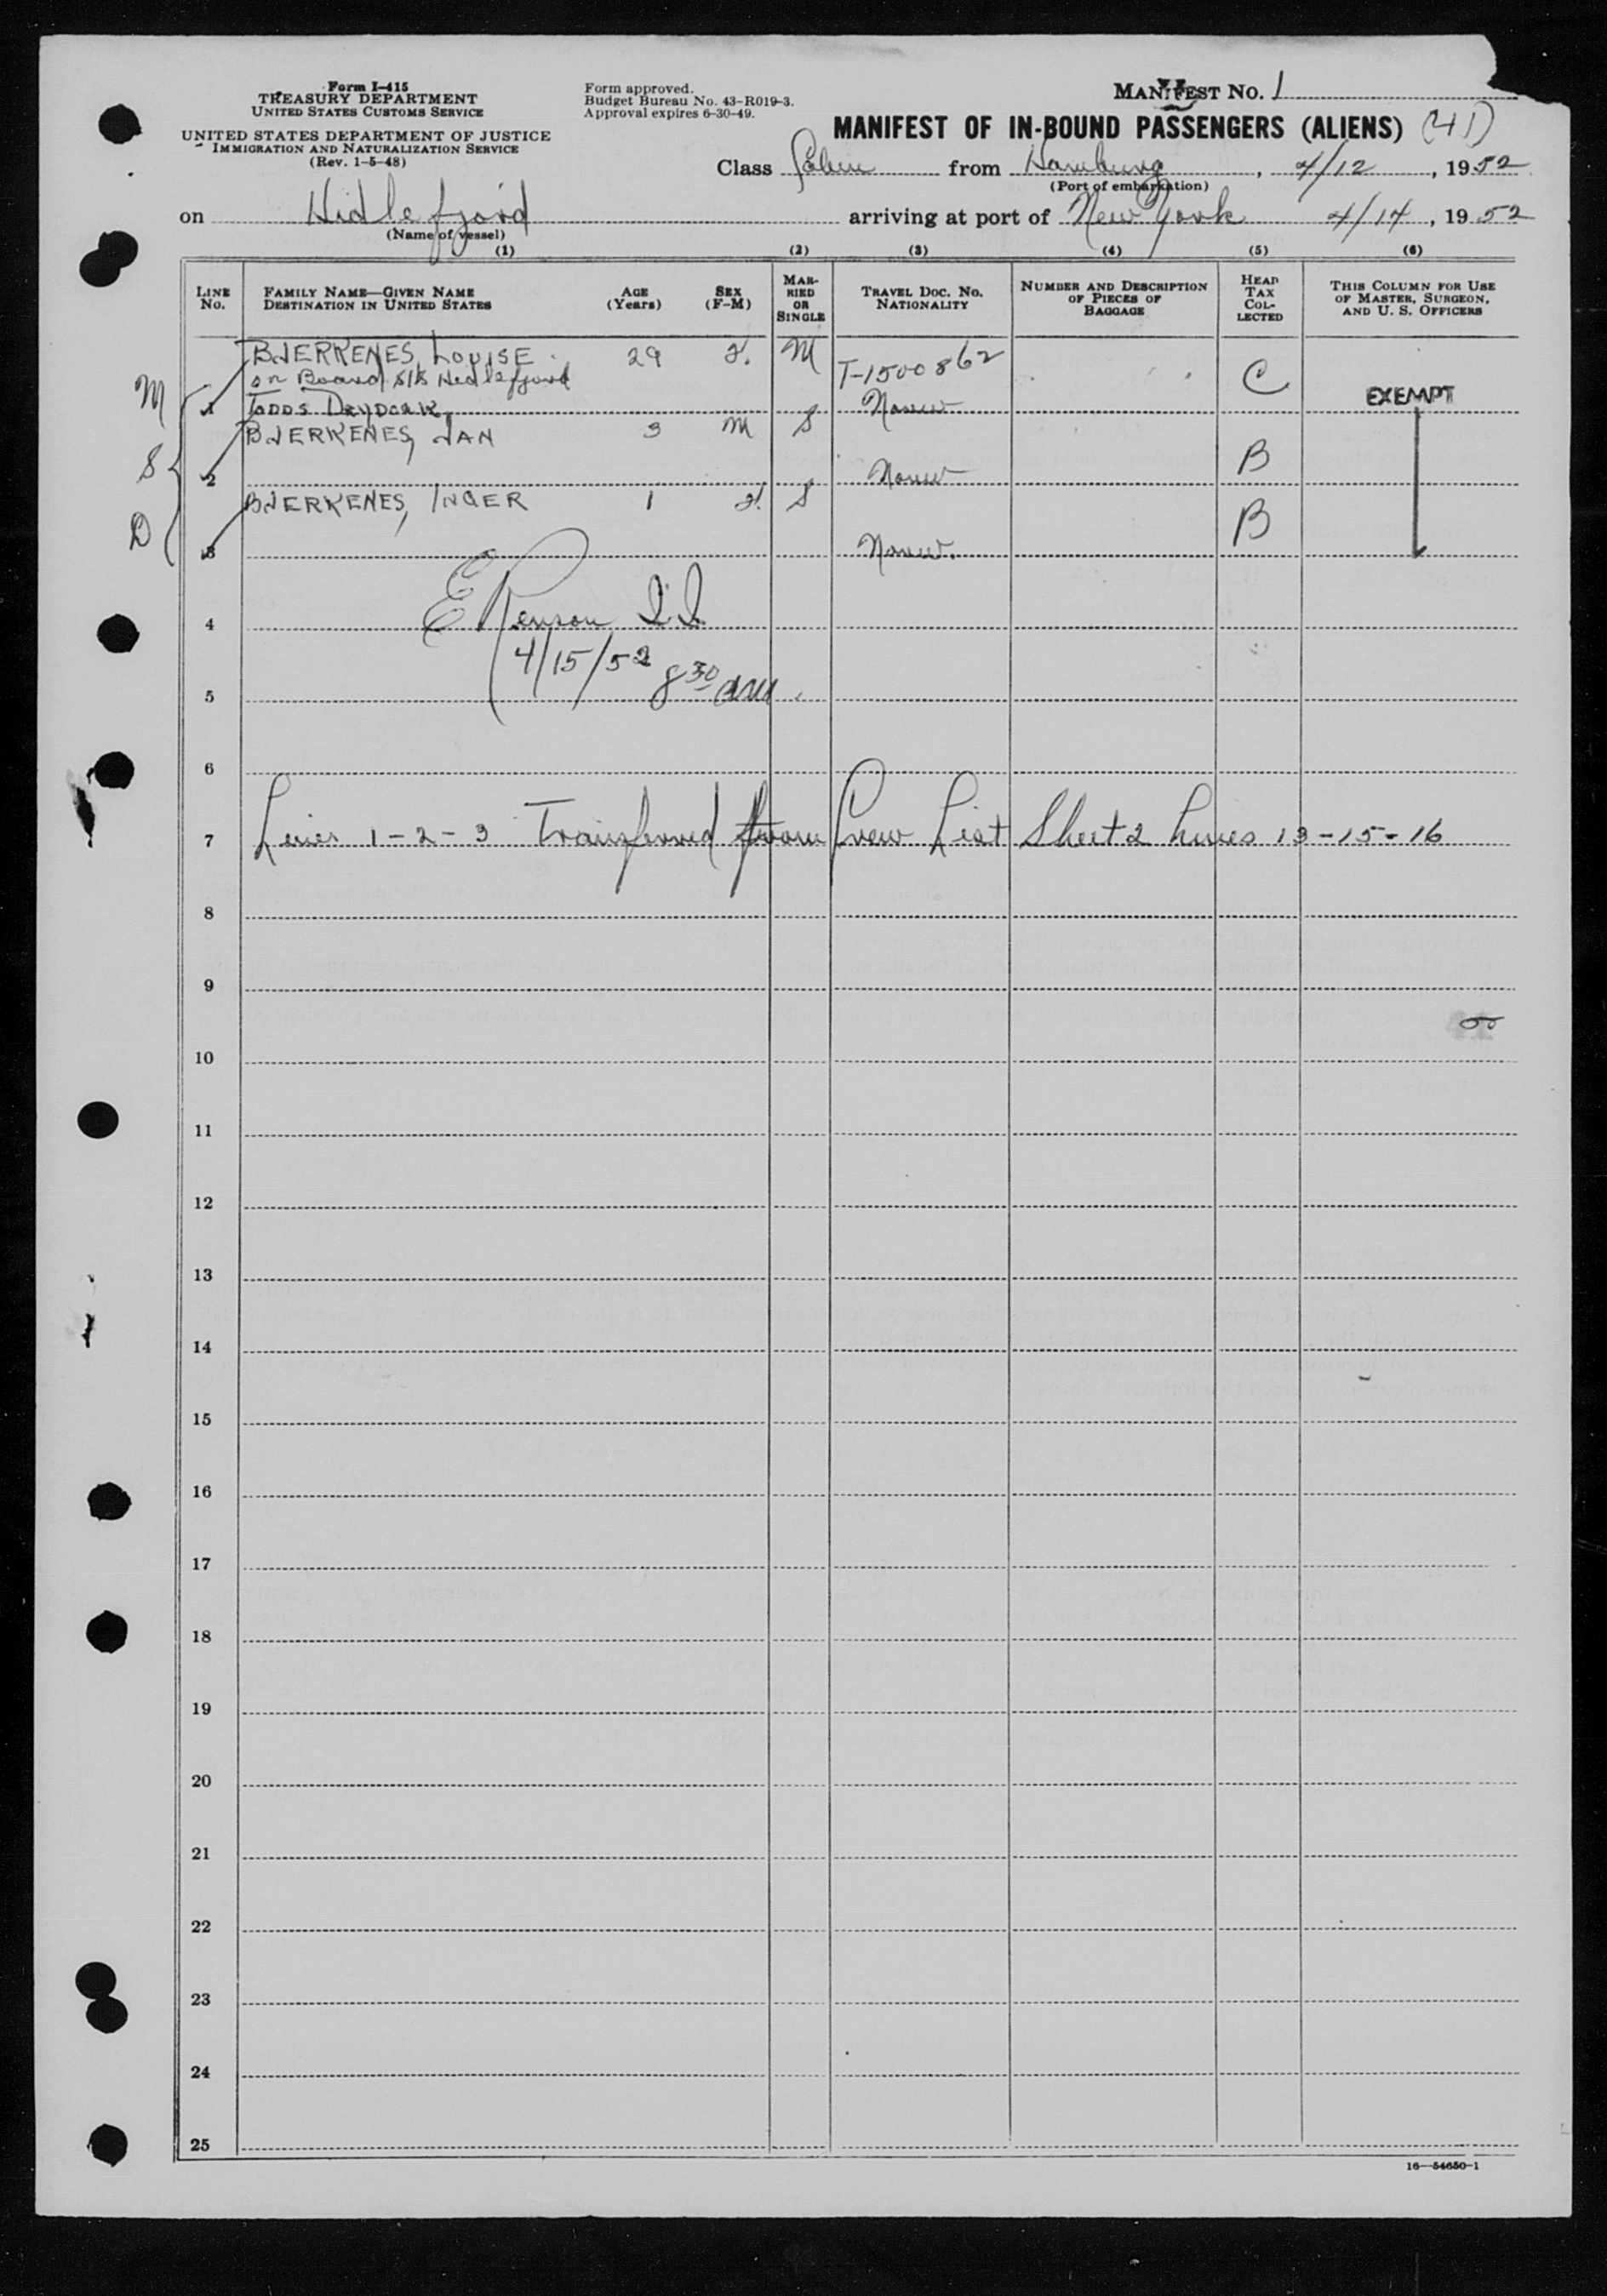 Form I-415
TREASURY DEPARTMENT
UNITED STATES CUSTOMS SERVICE
UNITED STATES DEPARTMENT OF JUSTICE
IMMIGRATION AND NATURALIZATION SERVICE
(Rev. 1-5-48)
Form approved.
Budget Bureau No. 43-R019-3.
Approval expires 6-30-49.
MANIFEST NO. 1
MANIFEST OF IN-BOUND PASSENGERS (ALIENS) (41)
Class Cabin from Hamburg, 4/12, 1952
(Port of embarkation)
on Hidlefjord arriving at port of New York 4/14, 1952
(Name of vessel)
(1) (2) (3) (4) (5) (6)
LINE NO. FAMILY NAME—GIVEN NAME DESTINATION IN UNITED STATES AGE (Years) SEX (F-M) MARRIED OR SINGLE TRAVEL DOC. NO. NATIONALITY NUMBER AND DESCRIPTION OF PIECES OF BAGGAGE HEAD TAX COLLECTED THIS COLUMN FOR USE OF MASTER, SURGEON, AND U. S. OFFICERS
BJERKENES, LOUISE 29 F. M T-1500862
on Board S/S Hidlefjord C
M 1 TODDS DRYDOCK Norw EXEMPT
BJERKENES, JAN 3 M S
S 2 Norw B
BJERKENES, INGER 1 F. S
D 3 Norw. B
4 I.I.
4/15/52
5 8 30 am.
6
7 Lines 1-2-3 Transferred from Crew List Sheet 2 Lines 13-15-16
8
9
10
11
12
13
14
15
16
17
18
19
20
21
22
23
24
25
16—54650-1